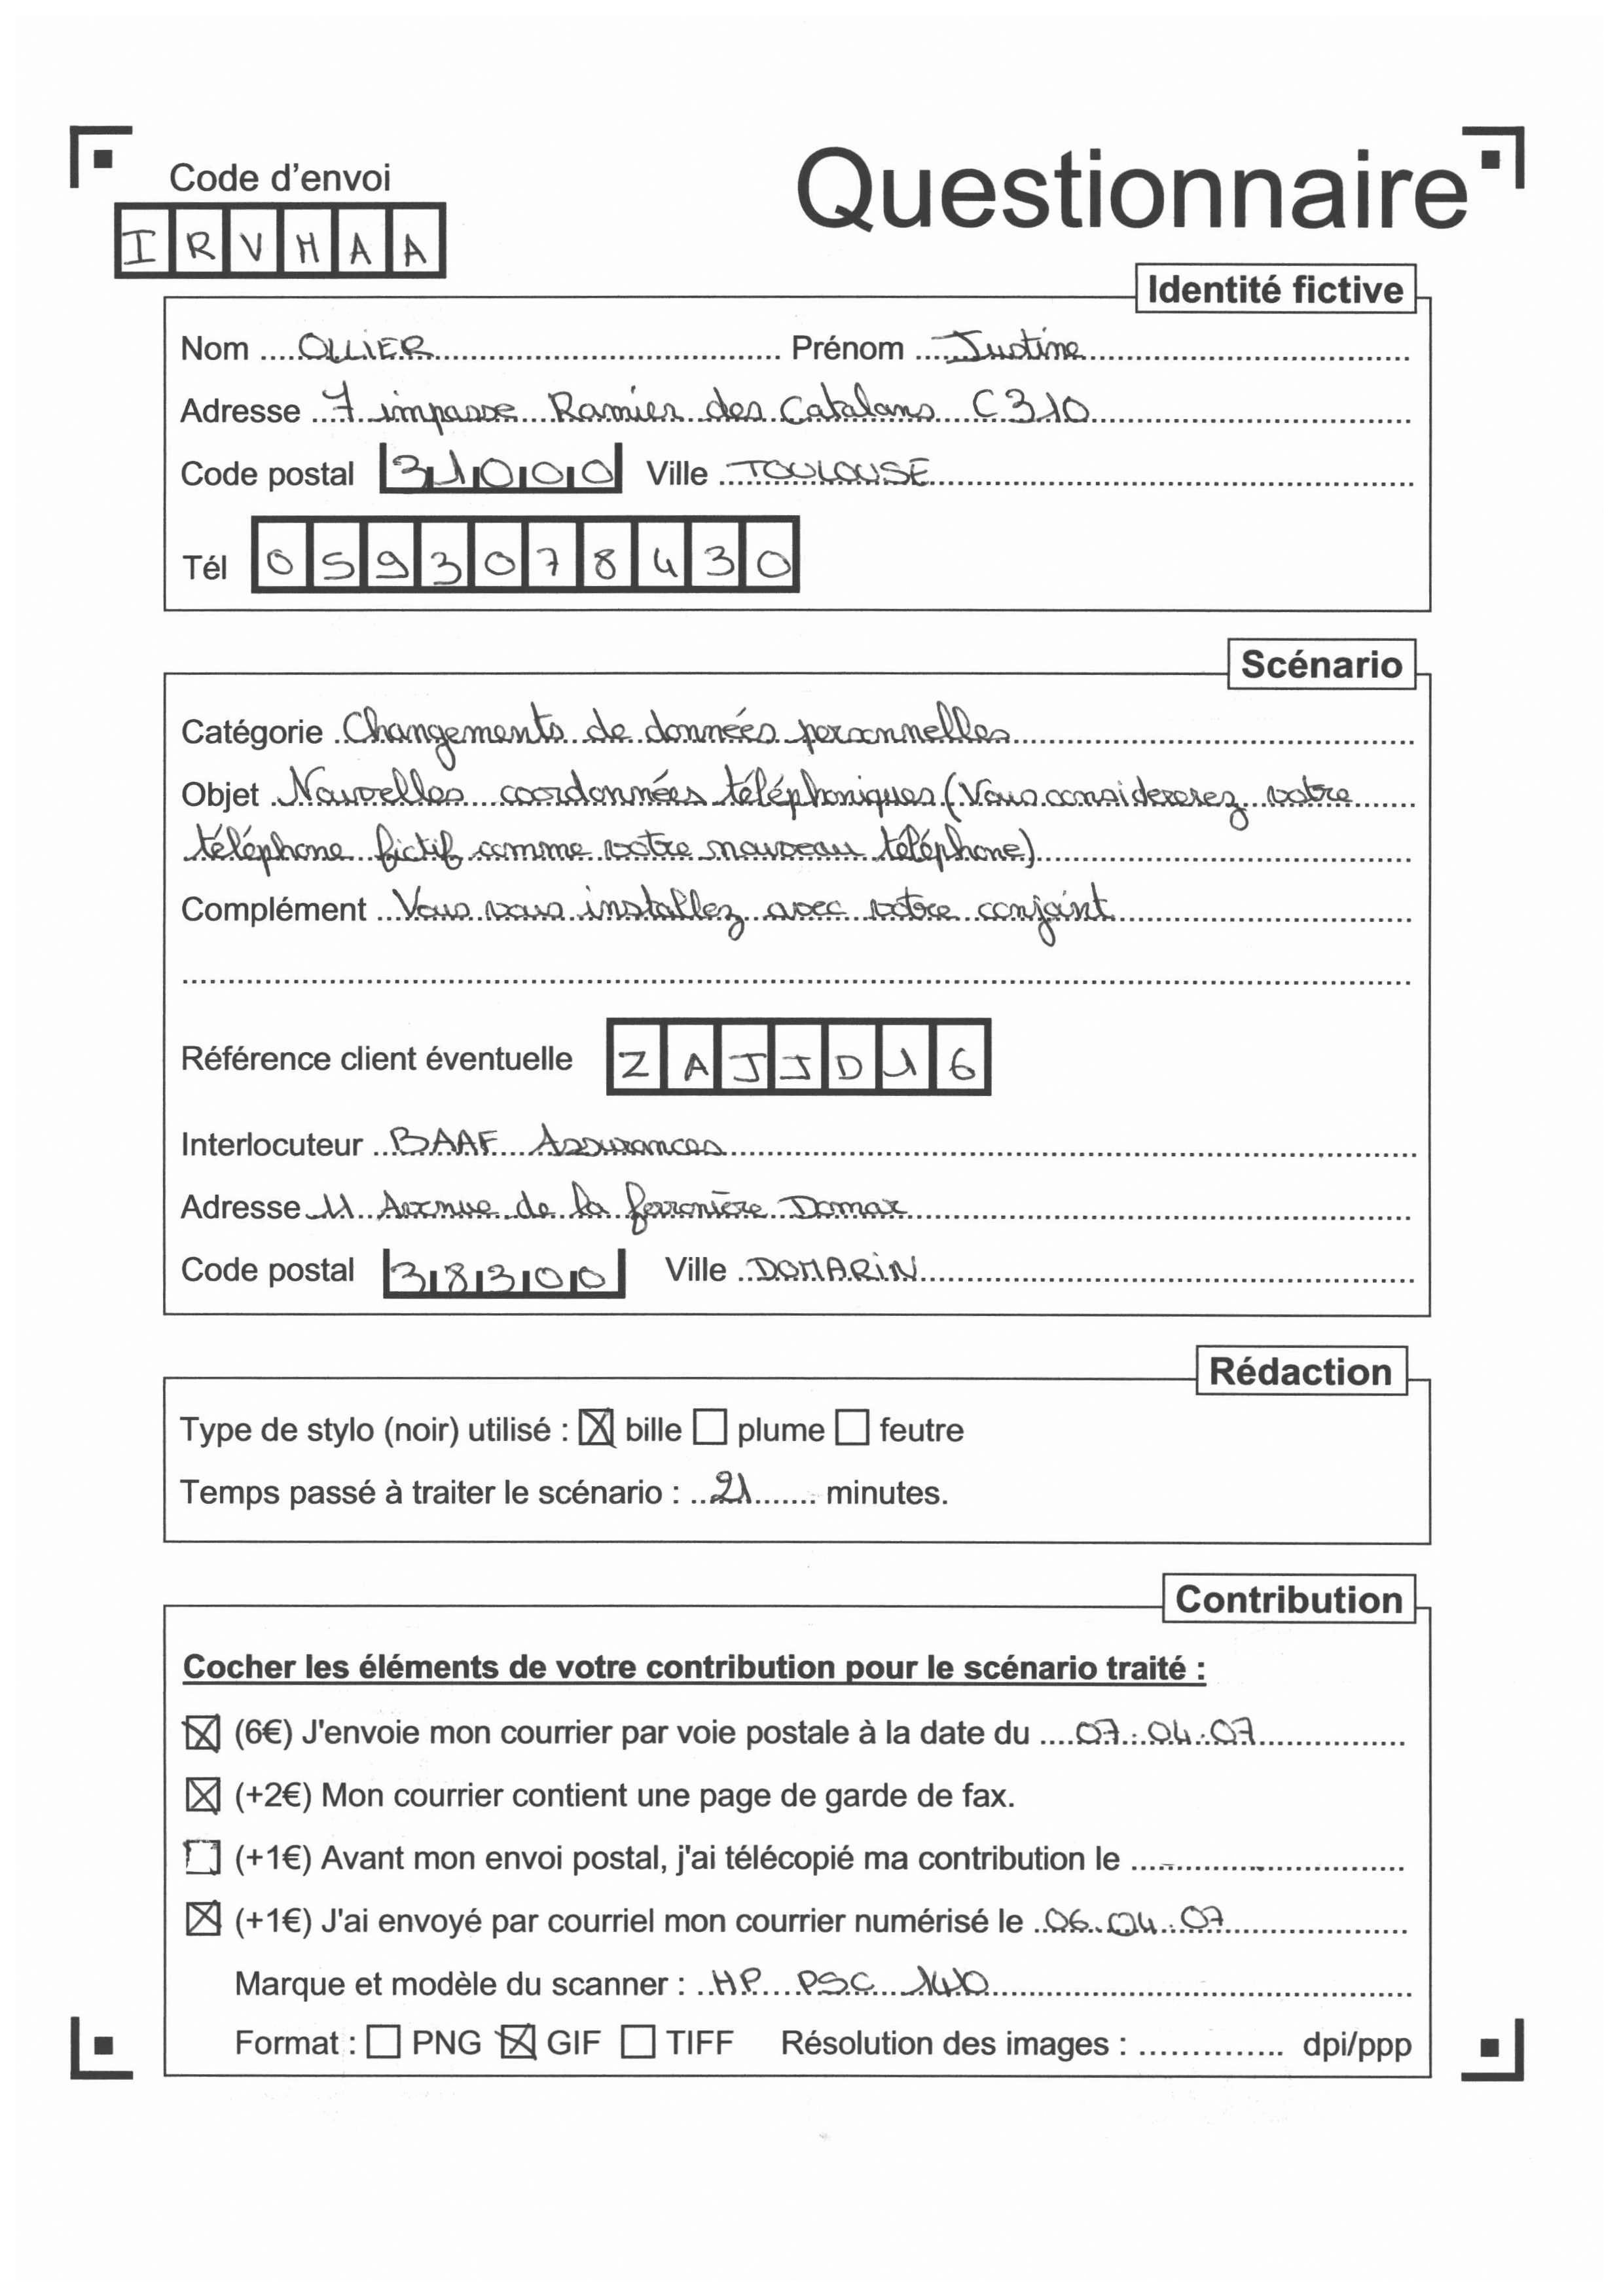 Questionnaire
Code d'envoi
IRVMAA
Identité fictive
Nom OLLIER Prénom Justine
Adresse 7 impasse Ramier des Catalans C310
Code postal 31000 Ville TOULOUSE
Tél 0593078430
Scénario
Catégorie Changements de données personnelles
Objet Nouvelles coordonnées téléphoniques (Vous considererez votre
téléphone fictif comme votre nouveau téléphone)
Complément Vous vous installez avec votre conjoint
Référence client éventuelle ZAJJD16
Interlocuteur BAAF Assurances
Adresse 11 Avenue de la ferronière Domax
Code postal 38300 Ville DOMARIN
Rédaction
Type de stylo (noir) utilisé : bille plume feutre
Temps passé à traiter le scénario : 21 minutes.
Contribution
Cocher les éléments de votre contribution pour le scénario traité :
(6€) J'envoie mon courrier par voie postale à la date du 07.04.07
(+2€) Mon courrier contient une page de garde de fax.
(+1€) Avant mon envoi postal, j'ai télécopié ma contribution le
(+1€) J'ai envoyé par courriel mon courrier numérisé le 06.04.07
Marque et modèle du scanner : HP PSC 1410
Format : PNG GIF TIFF Résolution des images : dpi/ppp